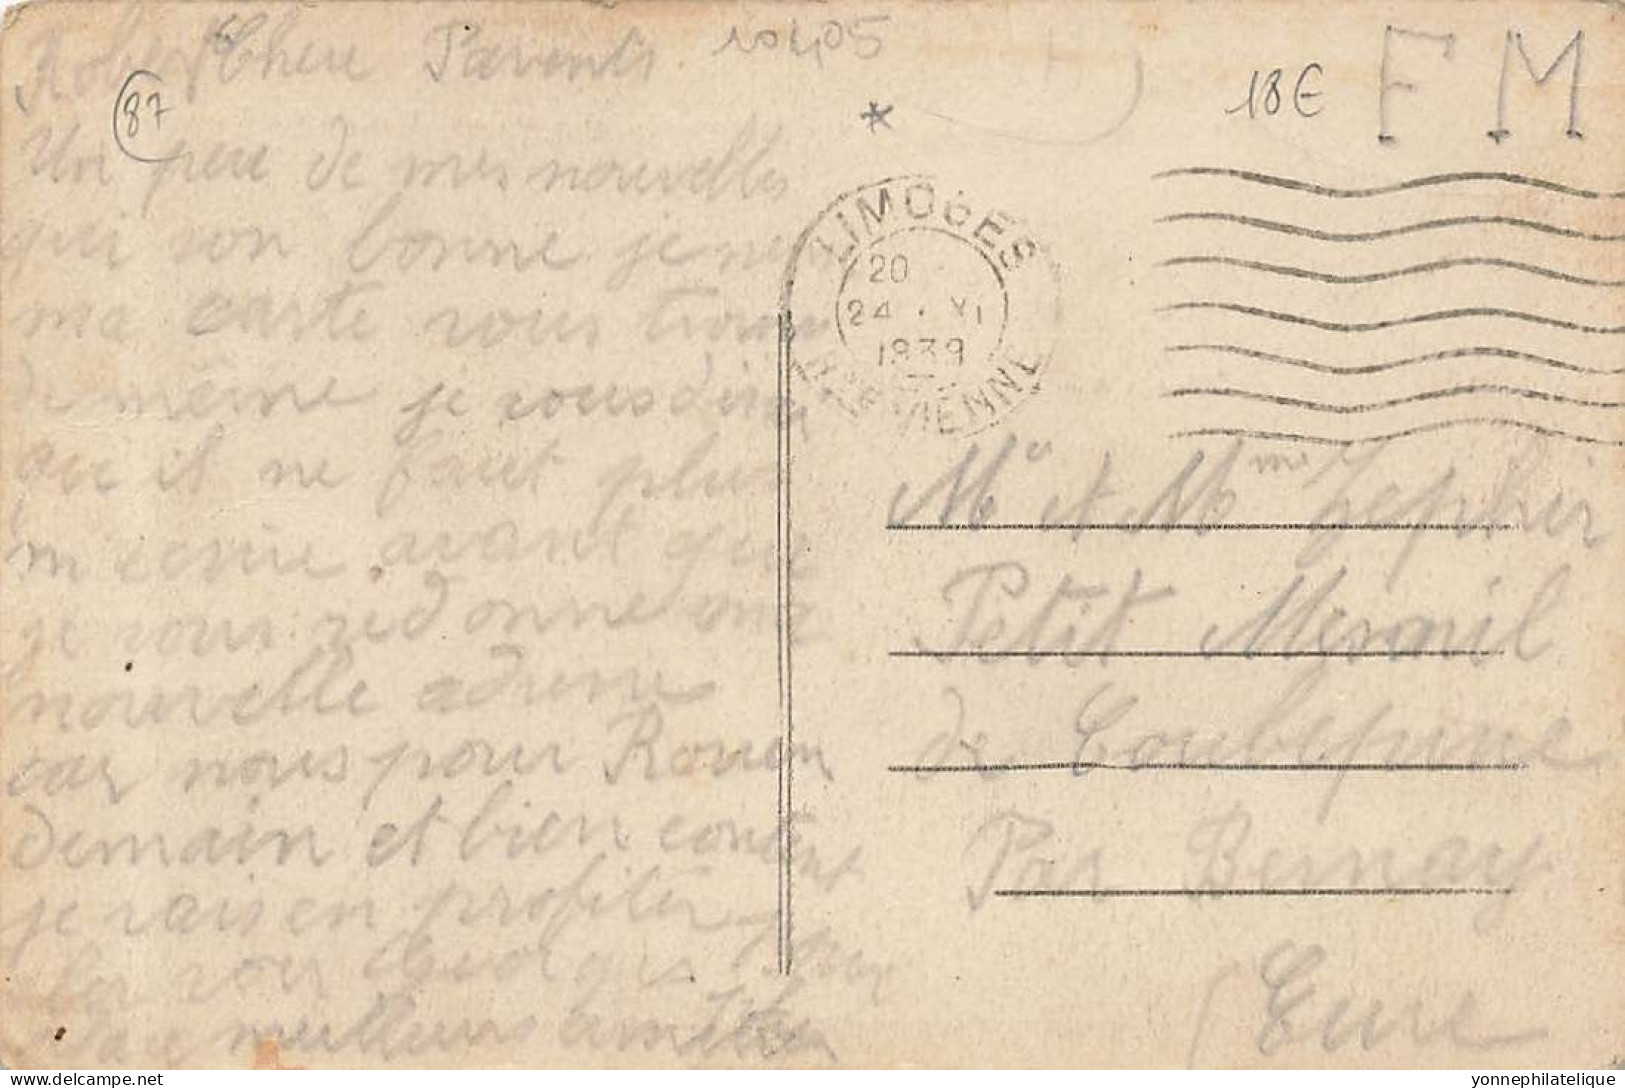 Chere Parents 10405
87
18€ F M
Un peu de mes nouvelles
qui son bonne je
ma carte vous trouve
de même je vous dirai
que il ne faut plus
m'ecrire avant que
je vous redonne ma
nouvelle adresse
car nous pour Rouen
demain et bien content
je vais en profiter
voir Georges
meilleurs amitiés
LIMOGES
20
24 . XI
1939
VIENNE
Mr et Mme Zephir
Petit Mesnil
de Courbepine
Par Bernay
Eure
yonnephilatelique